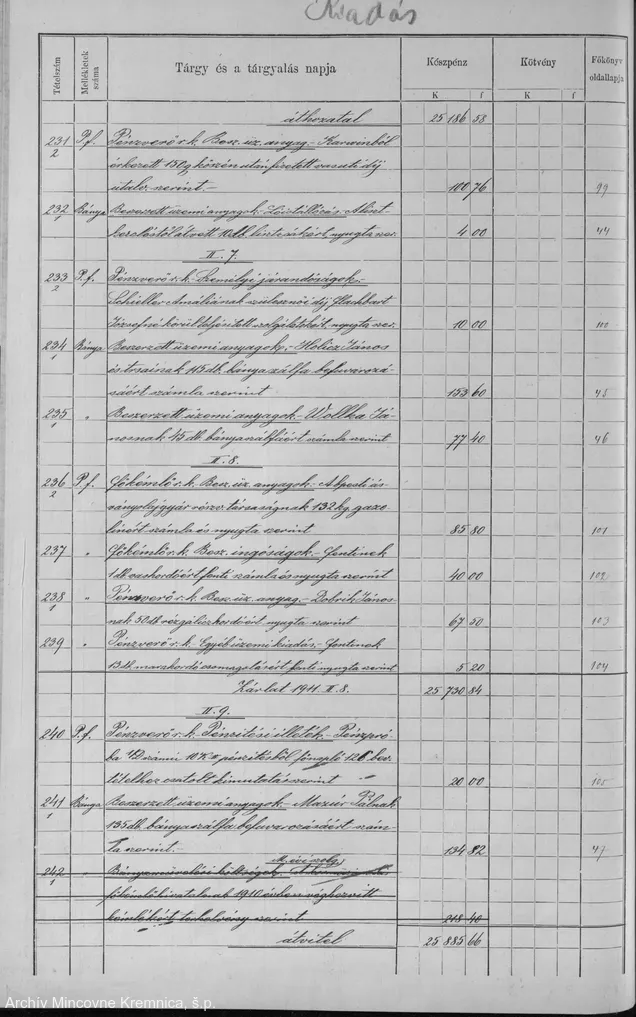 Kiadás
Tételszám
Mellékletek száma
Tárgy és a tárgyalás napja
Készpénz
Kötvény
Főkönyv oldallapja
K f K f
áthozatal 25 186 58
231 P.f. Pénzverő r.k. Besz. üz. anyag.- Karwinból
2 érkezett 150 q kőszén után fizetett vasuti díj
utalv. szerint.- 100 76 99
232 Bánya Beszerzett üzemi anyagok.
1 nyugta szer. 4 00 44
II. 7.
233 P.f. Pénzverő r.k. Személyi járandóságok.-
2 Schieller Amáliának szülésznői díj Flachbart
Józsefné körül teljesített szolgálatokért, nyugta szer. 10 00 100
234 Bánya Beszerzett üzemi anyagok.- Holicz János
1 és társainak 115 db. bányaszálfa befuvarozá-
sáért számla szerint 153 60 45
235 " Beszerzett üzemi anyagok.- Wollka Já-
1 nosnak 45 db. bányaszálfáért számla szerint 77 40 46
II. 8.
236 P.f. Főkémlő r.k. Besz. üz. anyagok.- A bpesti ás-
2 ványolajgyár részv. társaságnak 132 kg. gazo-
linért számla és nyugta szerint 85 80 101
237 " Főkémlő r.k. Besz. ingóságok.- Fentinek
1 db. vashordóért fenti számla és nyugta szerint 40 00 102
238 " Pénzverő r.k. Besz. üz. anyag.- Dobrik János-
1 nak 50 db. rézgálicz hordóért nyugta szerint 67 50 103
239 " Pénzverő r.k. Egyéb üzemi kiadás.- Fentinek
13 db. csomagolásért fenti nyugta szerint 5 20 104
Zárlat 1911. II. 8. 25 730 84
II. 9.
240 P.f. Pénzverő r.k. Pénzitési illeték.- Pénzpró-
ba számú 10 K pénzitésből főnapló 126 bev.
tételhez csatolt kimutatás szerint 20 00 105
241 Bánya Beszerzett üzemi anyagok.- Mazúr Pálnak
1 135 db. bányaszálfa befuvarozásáért szám-
la szerint.- 134 82 47
242 " Bányamivelési költségek.
1 főkémlőhivatalnak 1910 évben végbevitt
kémlékért szerint 218 40
átvitel 25 885 66
Archív Mincovne Kremnica, š.p.